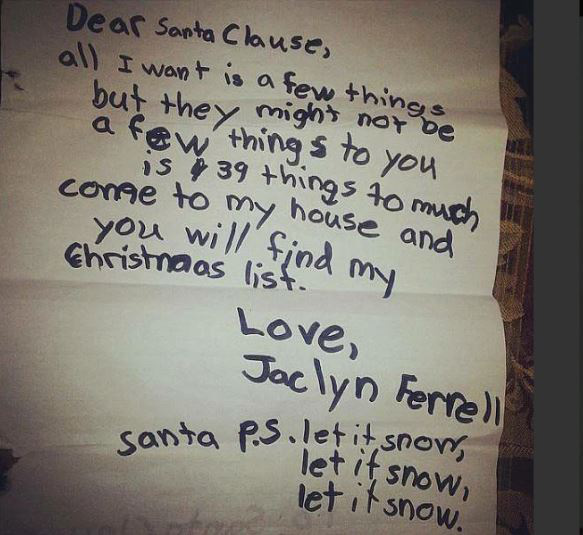 Dear Santa Clause,
all I want is a few things
but they might not be
a few things to you
is 39 things to much
come to my house and
you will find my
Christmaas list.
Love,
Jaclyn Ferrell
santa P.S. let it snow,
let it snow,
let it snow.